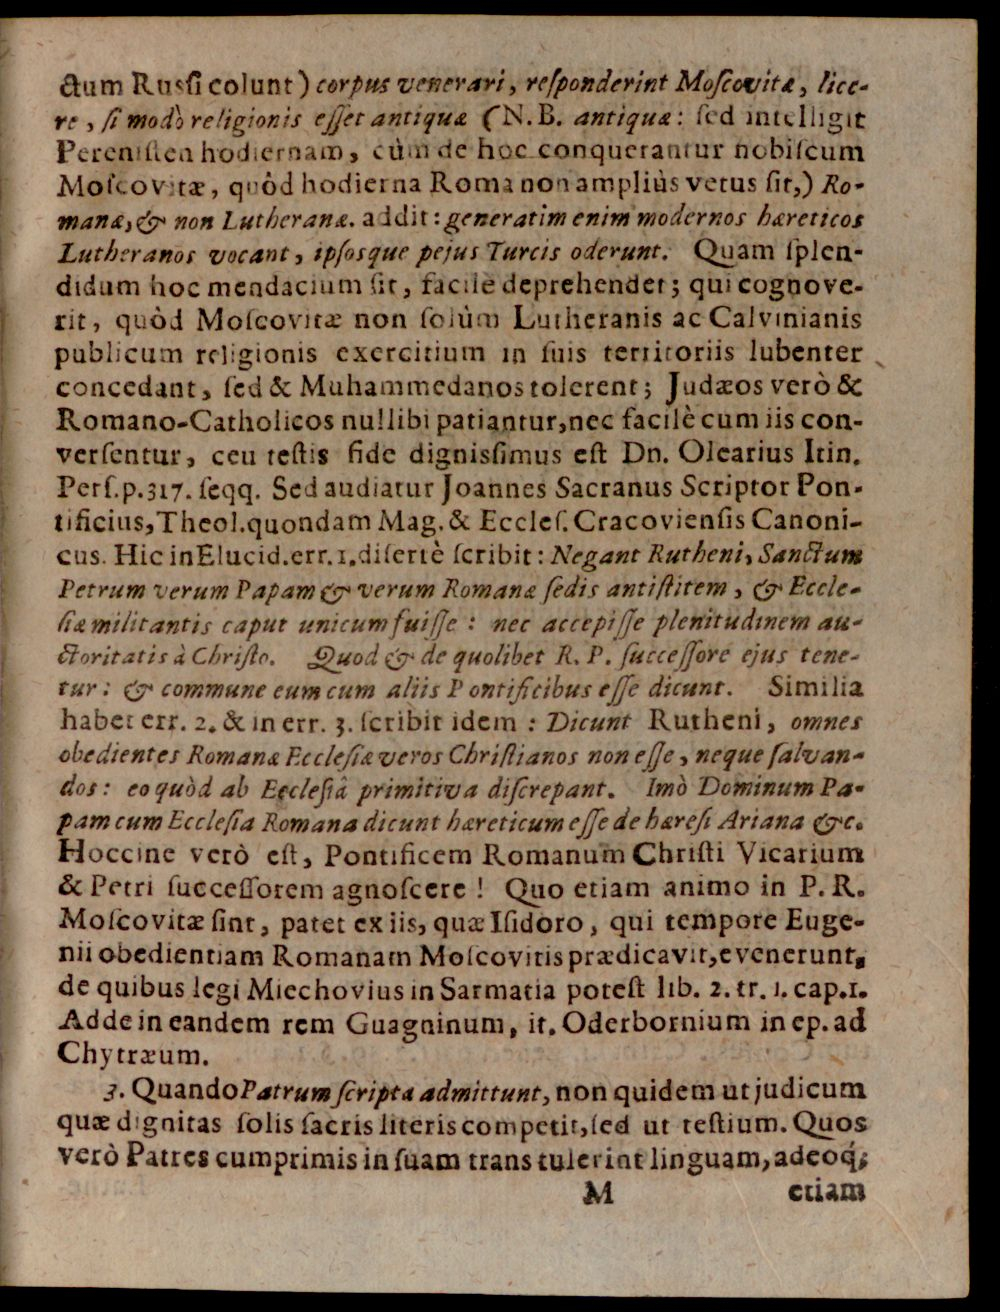 ctum Russi colunt) corpus venerari, responderint Moscovitæ, lice-
re, si modò religionis esset antiquæ (N.B. antiquæ: sed intelligit
hodiernam, cùm de hoc conquerantur nobiscum
Moscovitæ, quòd hodierna Roma non ampliùs vetus sit,) Ro-
manæ, & non Lutheranæ. addit: generatim enim modernos hæreticos
Lutheranos vocant, ipsosque pejus Turcis oderunt. Quam splen-
didum hoc mendacium sit, facilè deprehendet; qui cognove-
rit, quòd Moscovitæ non solùm Lutheranis ac Calvinianis
publicum religionis exercitium in suis territoriis lubenter
concedant, sed & Muhammedanos tolerent; Judæos verò &
Romano-Catholicos nullibi patiantur, nec facilè cum iis con-
versentur, ceu testis fide dignissimus est Dn. Olearius Itin.
Pers. p. 317. seqq. Sed audiatur Joannes Sacranus Scriptor Pon-
tificius, Theol. quondam Mag. & Eccles. Cracoviensis Canoni-
cus. Hic in Elucid. err. 1. disertè scribit: Negant Rutheni, Sanctum
Petrum verum Papam & verum Romanæ sedis antistitem, & Eccle-
siæ militantis caput unicum fuisse: nec accepisse plenitudinem au-
ctoritatis à Christo. Quod & de quolibet R. P. successore ejus tene-
tur: & commune eum cum aliis Pontificibus esse dicunt. Similia
habet err. 2. & in err. 3. scribit idem: Dicunt Rutheni, omnes
obedientes Romanæ Ecclesiæ veros Christianos non esse, neque salvan-
dos: eo quòd ab Ecclesiâ primitiva discrepant. Imò Dominum Pa-
pam cum Ecclesia Romana dicunt hæreticum esse de hæresi Ariana &c.
Hoccine verò est, Pontificem Romanum Christi Vicarium
& Petri successorem agnoscere! Quo etiam animo in P. R.
Moscovitæ sint, patet ex iis, quæ Isidoro, qui tempore Euge-
nii obedientiam Romanam Moscovitis prædicavit, evenerunt,
de quibus legi Miechovius in Sarmatia potest lib. 2. tr. 1. cap. 1.
Adde in eandem rem Guagninum, it. Oderbornium in ep. ad
Chytræum.
3. Quando Patrum scripta admittunt, non quidem ut judicum
quæ dignitas solis sacris literis competit, sed ut testium. Quos
verò Patres cumprimis in suam transtulerint linguam, adeoq́;
M etiam